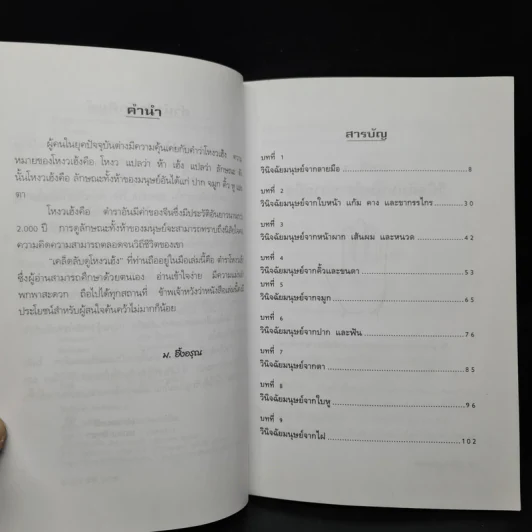 คำนำ
ผู้คนในยุคปัจจุบันต่างมีความคุ้นเคยกับคำว่าโหงวเฮ้ง ความ
หมายของโหงวเฮ้งคือ โหงว แปลว่า ห้า เฮ้ง แปลว่า ลักษณะ
นั้นโหงวเฮ้งคือ ลักษณะทั้งห้าของมนุษย์อันได้แก่ ปาก จมูก คิ้ว หู
ตา
โหงวเฮ้งคือ ตำราอันมีค่าของจีนซึ่งมีประวัติอันยาวนาน
2,000 ปี การดูลักษณะทั้งห้าของมนุษย์จะสามารถทราบถึงนิสัย
ความคิดความสามารถตลอดจนวิถีชีวิตของเขา
"เคล็ดลับดูโหงวเฮ้ง" ที่ท่านถืออยู่ในมือเล่มนี้คือ ตำรา
ซึ่งผู้อ่านสามารถศึกษาด้วยตนเอง อ่านเข้าใจง่าย มีความ
พกพาสะดวก ถือไปได้ทุกสถานที่ ข้าพเจ้าหวังว่าหนังสือเล่มนี้
ประโยชน์สำหรับผู้สนใจค้นคว้าไม่มากก็น้อย
ม. อึ้งอรุณ
สารบัญ
บทที่ 1
วินิจฉัยมนุษย์จากลายมือ 8
บทที่ 2
วินิจฉัยมนุษย์จากใบหน้า แก้ม คาง และขากรรไกร 30
บทที่ 3
วินิจฉัยมนุษย์จากหน้าผาก เส้นผม และหนวด 42
บทที่ 4
วินิจฉัยมนุษย์จากคิ้วและขนตา 53
บทที่ 5
วินิจฉัยมนุษย์จากจมูก 65
บทที่ 6
วินิจฉัยมนุษย์จากปาก และฟัน 76
บทที่ 7
วินิจฉัยมนุษย์จากตา 85
บทที่ 8
วินิจฉัยมนุษย์จากใบหู 96
บทที่ 9
วินิจฉัยมนุษย์จากไฝ 102